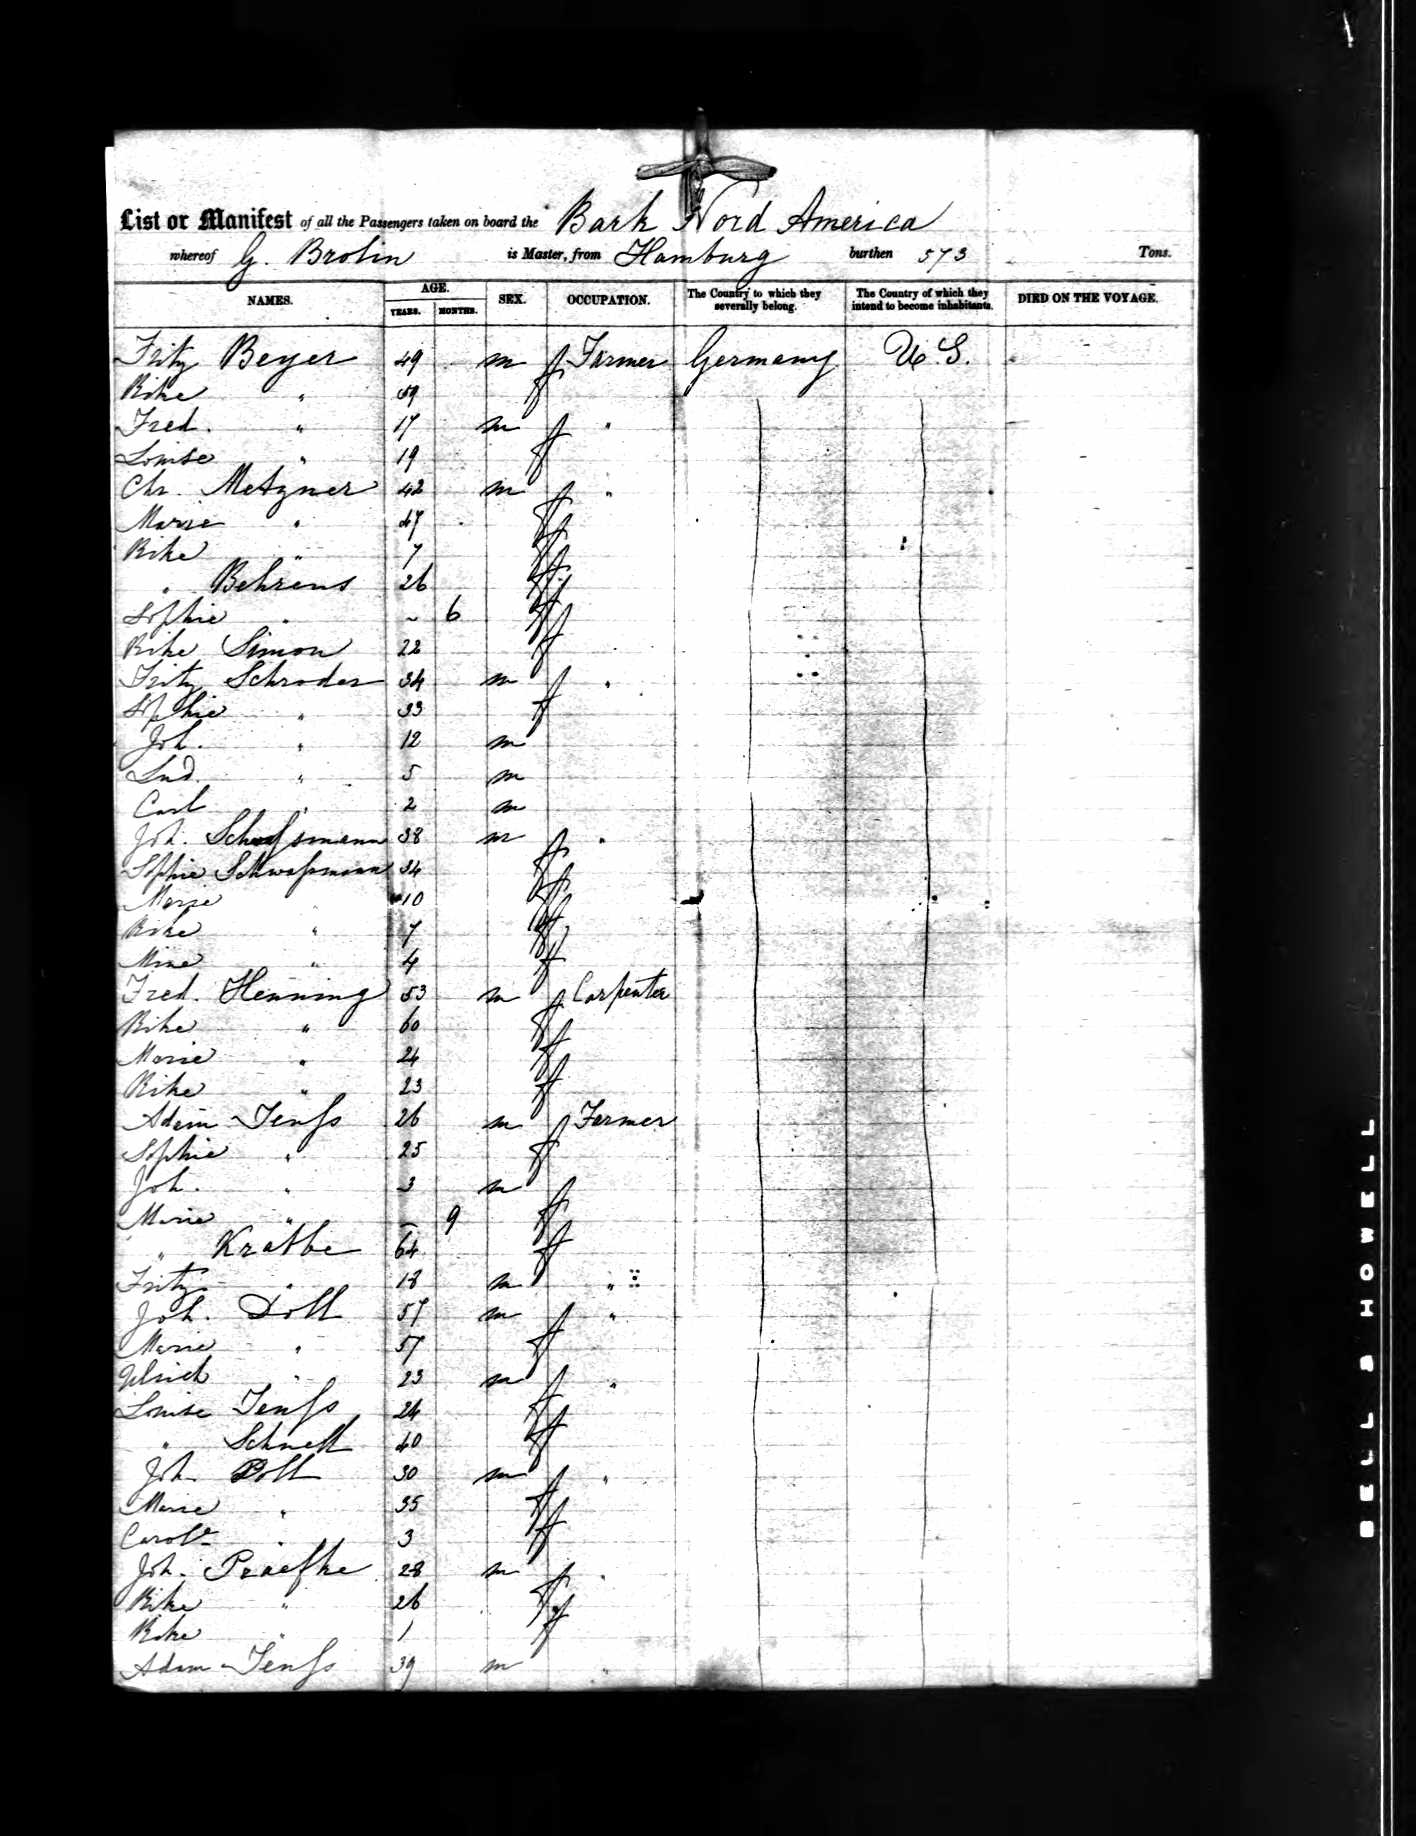 List or Manifest of all the Passengers taken on board the Bark Nord America
whereof G. Brolin is Master, from Hamburg burthen 573 Tons.
NAMES. AGE. YEARS. MONTHS. SEX. OCCUPATION. The Country to which they severally belong. The Country of which they intend to become inhabitants. DIED ON THE VOYAGE.
Fritz Beyer 49 m Farmer Germany U.S.
Rike " 59 f
Fred. " 17 m "
Louise " 19 f
Chr. Metzner 42 m "
Marie " 47 f
Rike " 7 f
" Behrens 26 f
Sophie " ~ 6 f
Rike Simon 22 f
Fritz Schroder 34 m "
Sophie " 33 f
Joh. " 12 m
Lud. " 5 m
Carl " 2 m
Joh. 38 m "
Sophie Schwassmann 34 f
Marie " 10 f
Rike " 7 f
Mine " 4 f
Fred. Henning 53 m Carpenter
Rike " 60 f
Marie " 24 f
Rike " 23 f
Adam Jenss 26 m Farmer
Sophie " 25 f
Joh. " 3 m
Marie " – 9 f
" Krabbe 64 f
Fritz " 18 m "
Joh. Doll 57 m "
Marie " 57 f
Ulrich " 23 m "
Louise Jenss 24 f
" Schnell 40 f
Joh. Boll 30 m "
Marie " 35 f
Carol. " 3 f
Joh. Praefke 28 m "
Rike " 26 f
Rike " 1 f
Adam Jenss 39 m "
BELL & HOWELL